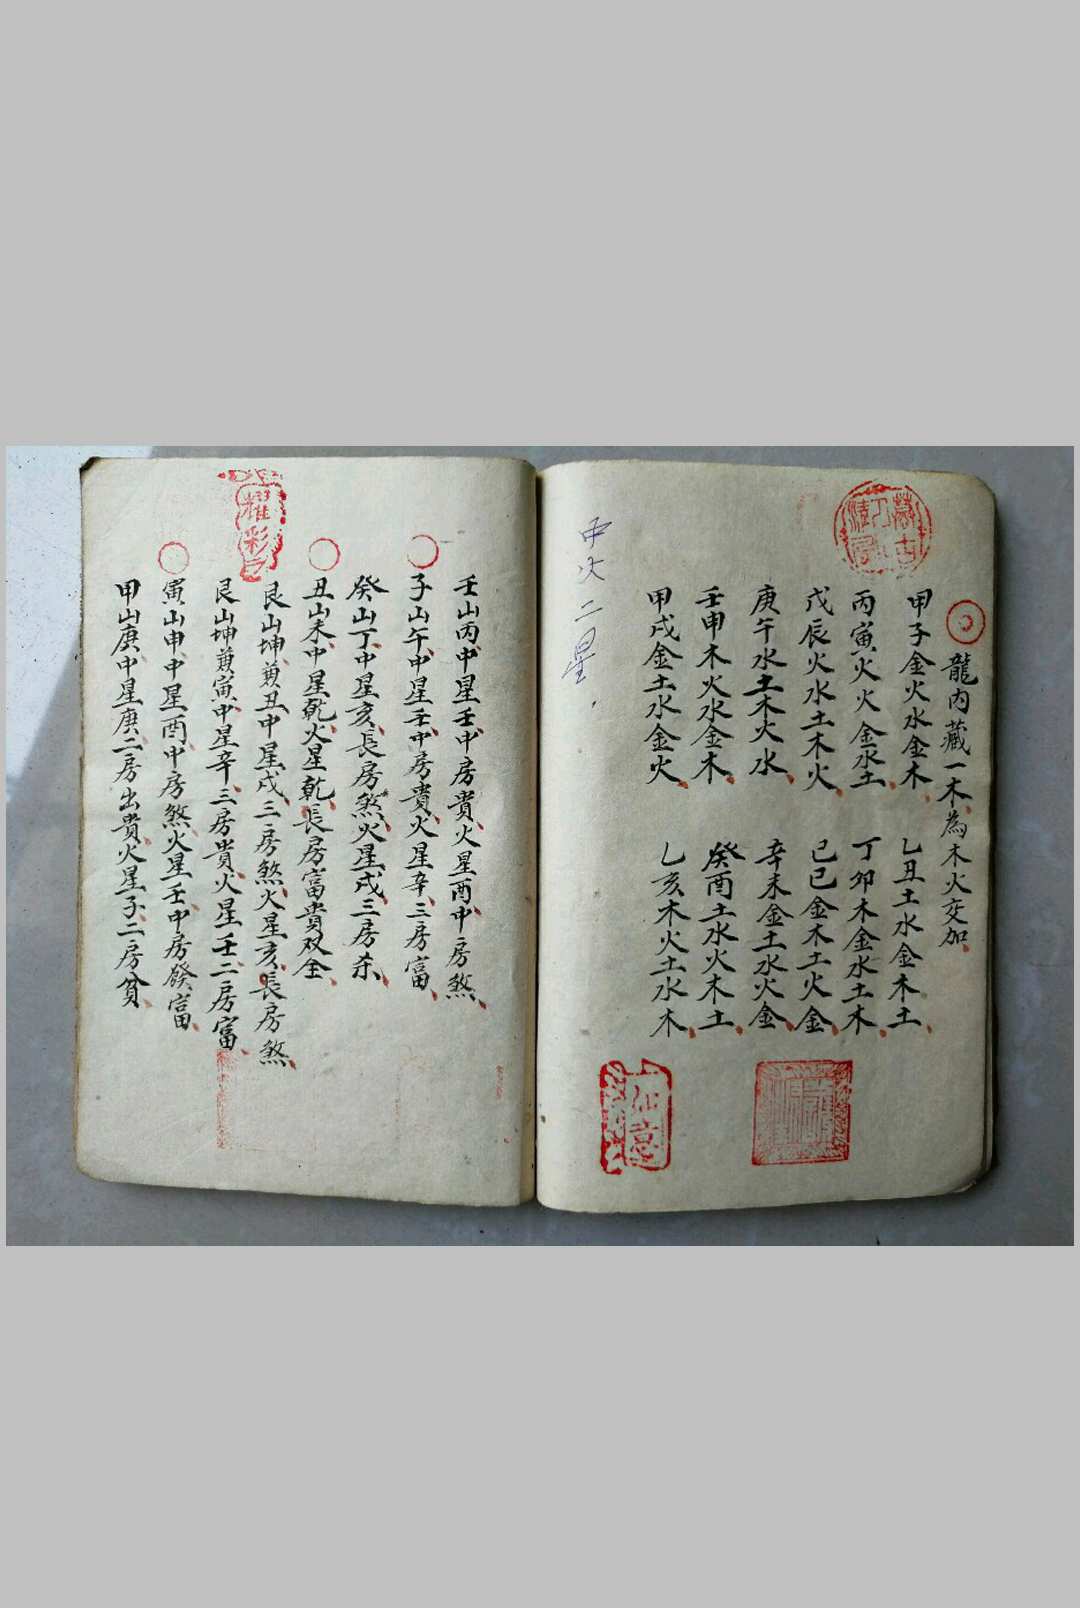 龍内藏一木為木火交加
甲子金火水金木
乙丑土水金木土
丙寅火火金水土
丁卯木金水土木
戊辰火水土木火
己巳金木土火金
庚午水土木火水
辛未金土水火金
壬申木火水金木
癸酉土水火木土
甲戌金土水金火
乙亥木火土水木
中火二星
如意
壬山丙中星壬中房貴火星酉中房煞
子山午中星壬中房貴火星辛三房富
癸山丁中星亥長房煞火星戌三房杀
丑山未中星乾火星乾長房富貴双全
艮山坤兼丑中星戌三房煞火星亥長房煞
艮山坤兼寅中星辛三房貴火星壬二房富
寅山申中星酉中房煞火星壬中房發富
甲山庚中星庚二房出貴火星子二房貧
耀彩